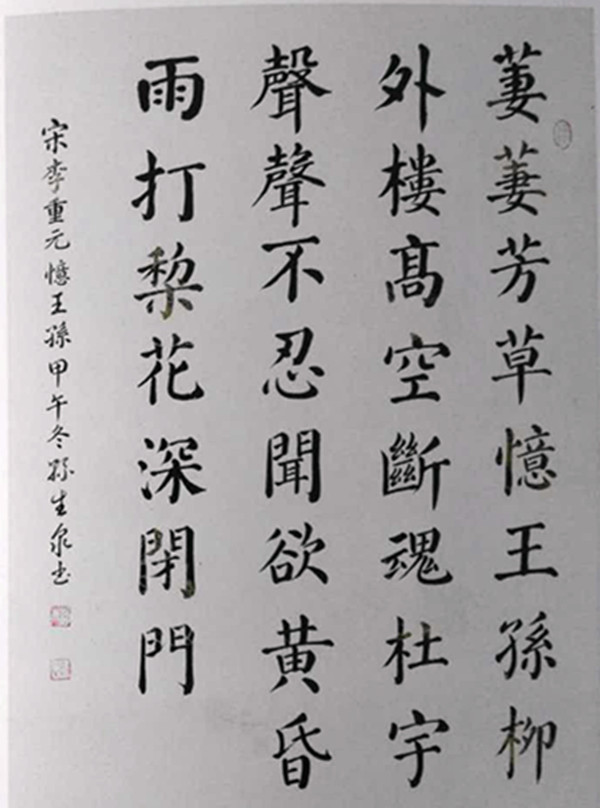 萋萋芳草憶王孫柳
外樓高空斷魂杜宇
聲聲不忍聞欲黃昏
雨打棃花深閉門
宋李重元憶王孫甲午冬孫生泉書